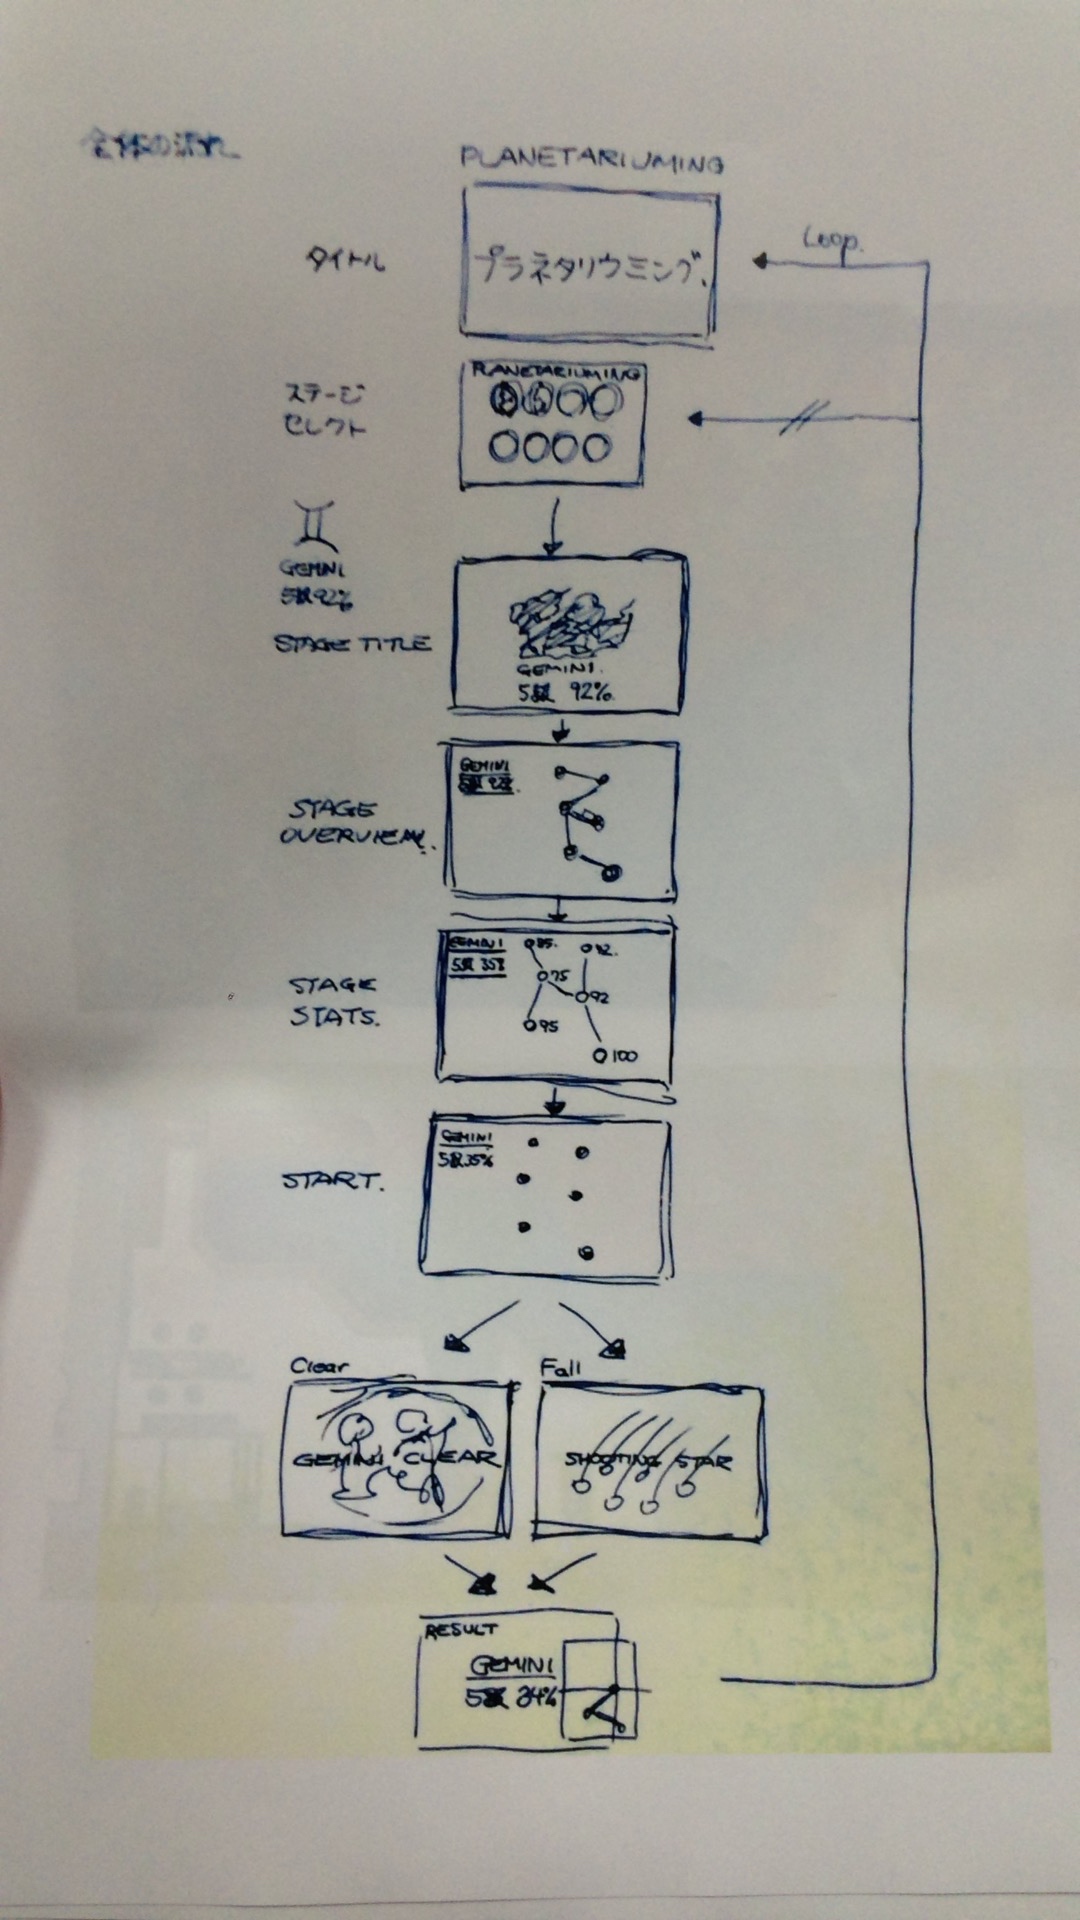 全体の流れ
PLANETARIUMING
タイトル
プラネタリウミング.
Loop.
ステージ
セレクト
PLANETARIUMING
GEMINI
5級92%
STAGE TITLE
GEMINI.
5級 92%.
STAGE
OVERVIEW.
GEMINI
5級 92%.
STAGE
STATS.
GEMINI
5級 35%
85.
92.
75
92
95
100
START.
GEMINI
5級35%
Clear
GEMINI CLEAR
Fall
SHOOTING STAR
RESULT
GEMINI
5級 34%